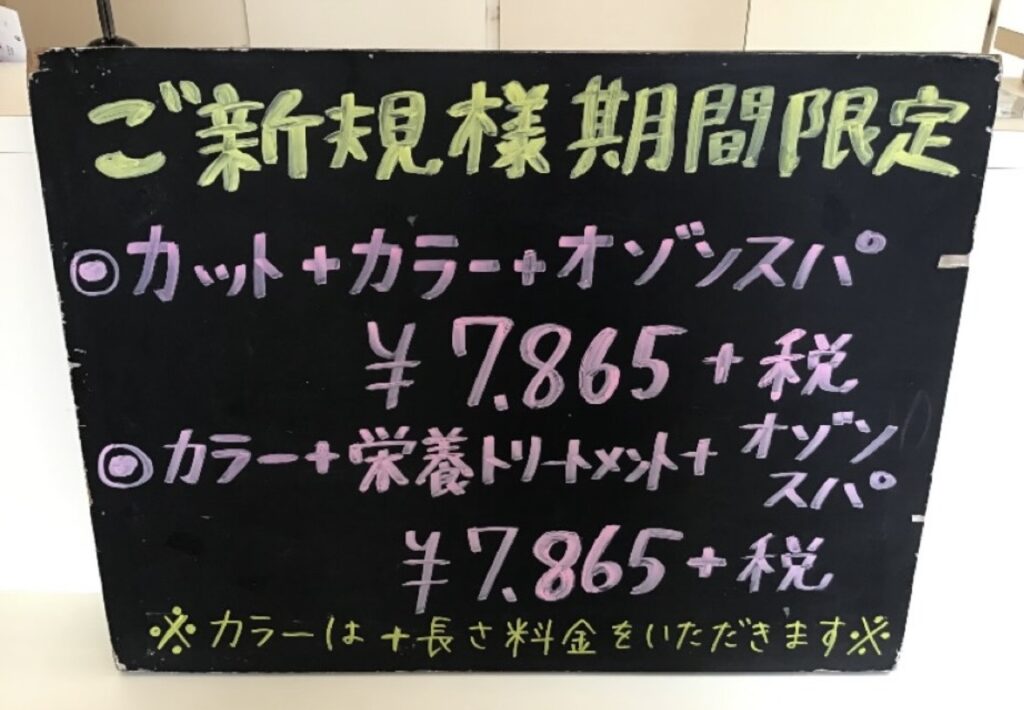 ご新規様期間限定
◉カット+カラー+オゾンスパ
¥7.865+税
◉カラー+栄養トリートメント+オゾンスパ
¥7.865+税
※カラーは+長さ料金をいただきます※